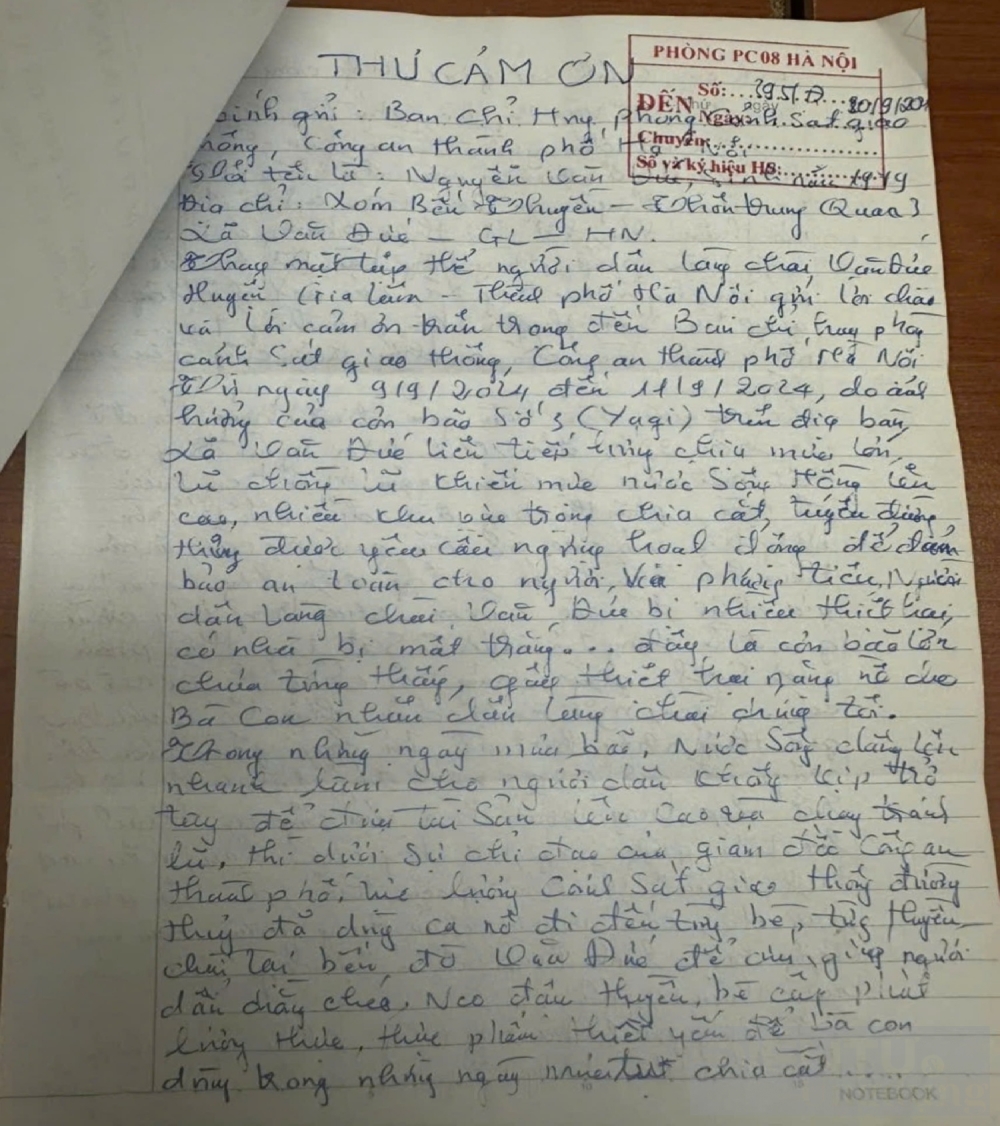 THƯ CẢM ƠN
PHÒNG PC08 HÀ NỘI
Số: 395/Đ
ĐẾN Ngày 30/9/20
Chuyển:
Số và ký hiệu HS:
Kính gửi: Ban Chỉ Huy phòng Cảnh Sát giao
thông, Công an thành phố Hà Nội
Tôi tên là: Nguyễn Văn Đức, sinh năm
Địa chỉ: Xóm Bến Thuyền - Thôn trung Quan 3
Xã Văn Đức - GL - HN.
Thay mặt tập thể người dân làng chài Văn Đức
Huyện Gia Lâm - Thành phố Hà Nội gửi lời chào
và lời cảm ơn trân trọng đến Ban chỉ huy phòng
cảnh sát giao thông, Công an thành phố Hà Nội
Từ ngày 9/9/2024 đến 11/9/2024, do ảnh
hưởng của cơn bão số 3 (Yagi) trên địa bàn
Xã Văn Đức liên tiếp hứng chịu mưa lớn,
lũ chồng lũ khiến mực nước Sông Hồng lên
cao, nhiều khu vực trong chia cắt, tuyến đường
thủy được yêu cầu ngừng hoạt động để đảm
bảo an toàn cho người, và phương tiện, Người
dân Làng chài Văn Đức bị nhiều thiệt hại,
có nhà bị mất trắng... đây là cơn bão lớn
chưa từng thấy, gây thiệt hại nặng nề cho
Bà Con nhân dân làng chài chúng tôi.
Trong những ngày mưa bão, Nước Sông dâng lên
nhanh làm cho người dân không kịp trở
tay để đưa tài sản lên cao và chạy tránh
lũ, thì dưới sự chỉ đạo của giám đốc Công an
thành phố, lực lượng Cảnh Sát giao thông đường
thủy đã dùng ca nô đi đến từng bè, từng thuyền
chài tại bến đò Văn Đức để giúp người
dân dằng chéo, Neo đậu thuyền, bè cấp phát
lương thực, thực phẩm thiết yếu để bà con
dùng trong những ngày mưa chia cắt.....
NOTEBOOK